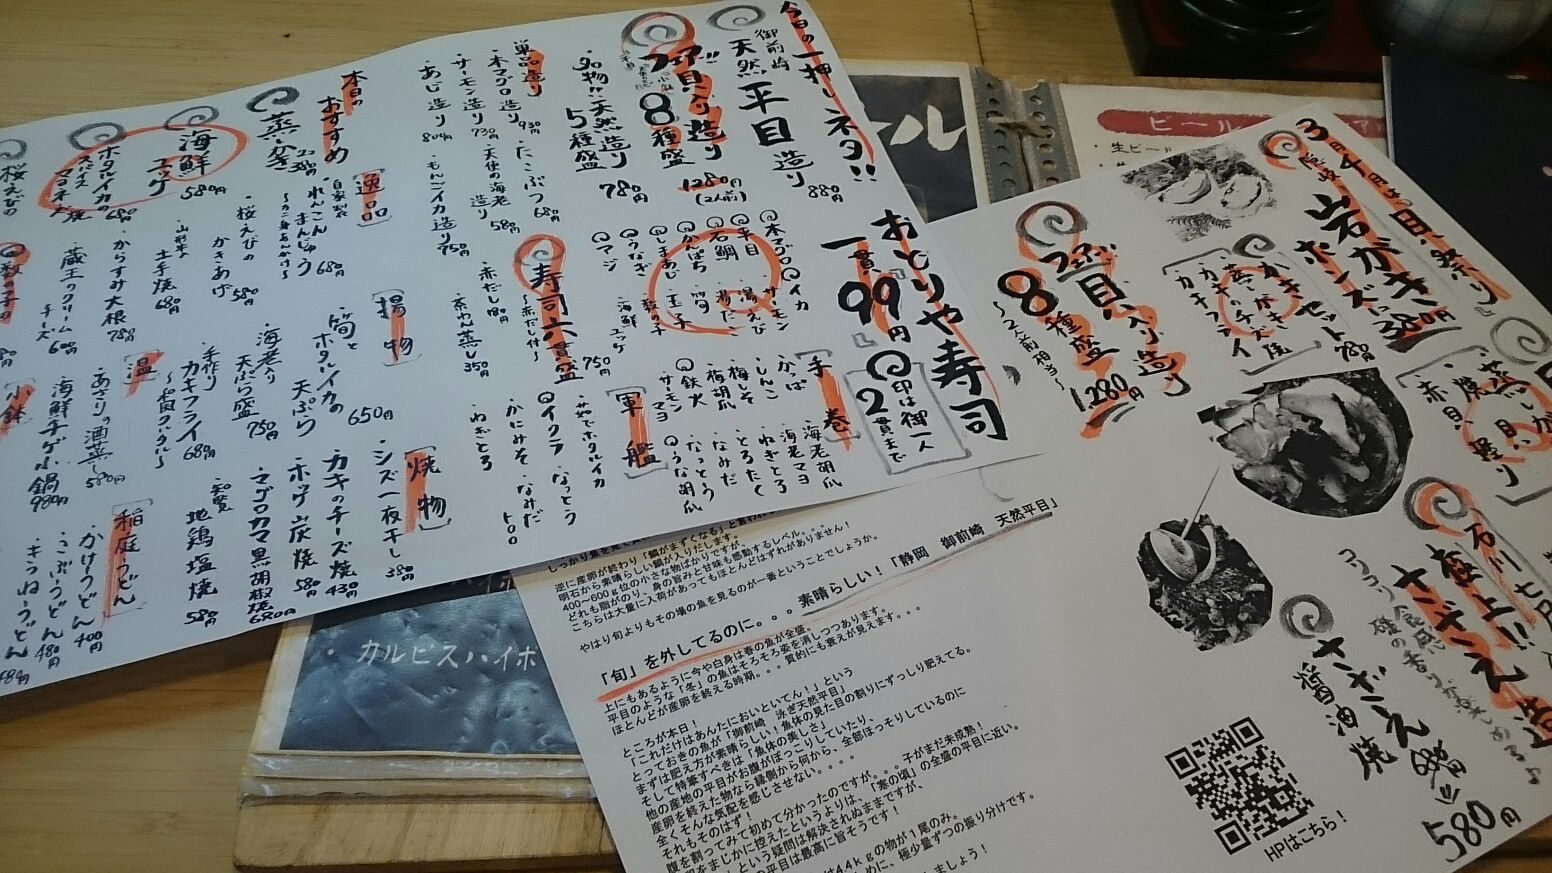 今日の一押しネタ!!
御前崎
天然平目造り
880円
貝入り造り
8種盛
1280円
(2人前)
天然造り
5種盛
780円
単品造り
・本マグロ造り 930円
・サーモン造り 730円
・あじ造り
・たこぶつ 680円
・天使の海老造り 580円
・もんごイカ造り 750円
おどりや寿司
一貫99円
印は御一人
2貫まで
本マグロ
イカ
サーモン
平目
湯えび
石鯛
湯だこ
かんぱち
しまあじ
玉子
うなぎ
数の子
アジ
海鮮ユッケ
寿司六貫盛
〜赤だし付〜
750円
・赤だし 180円
・茶わん蒸し 350円
手巻
・かっぱ
・しんこ
・梅しそ
・梅胡瓜
鉄火
サーモン
・海老胡瓜
・海老マヨ
・ねぎとろ
・とろたく
・なみだ
・なっとう
うな胡瓜
軍艦
イクラ
・かにみそ
・ねぎとろ
・なっとう
・なみだ
・トロロ
本日の
おすすめ
海鮮
ユッケ
580円
ホタルイカの
逸品
自家製
・れんこんまんじゅう
〜カニ身あんかけ〜
680円
・桜えびの
かきあげ
580円
・山形牛の
土手焼
680円
・からすみ大根 780円
・蔵王のクリーム
チーズ 600円
揚物
・筍とホタルイカの
天ぷら 650円
・海老入り
天ぷら盛 750円
・手作り
カキフライ
680円
温
・あさりの酒蒸し 580円
・海鮮チゲ小鍋 980円
焼物
・シズ一夜干し 380円
・カキのチーズ焼 430円
・ホッケ炭焼 580円
・マグロカマ黒胡椒焼 680円
・知覧
地鶏塩焼 580円
稲庭うどん
・かけうどん 400円
・こぶうどん 480円
・きつねうどん
小鉢
桜えびの
カルピスハイボ
ール
ビール
・生ビール
3月4日は貝祭り
隠岐
岩がき
ポンズに
380円
かきセット
780円
・蒸しがき
・カキのチーズ焼
・カキフライ
貝入り造り
8種盛
〜2人前相当〜
1280円
・赤貝
石川七尾
極上!!
さざえ造
コリコリ食感
磯の香りが楽しめるよ
さざえ
醤油焼
580円
HPはこちら!
逆に産卵が終わり「鯛がまずくなる」と言われる
明石から素晴らしい鯛が入りだします。
400~600g位の小さな物ばかりですが、
どれも脂がのり、身の旨みと甘味も感動するレベル。。。。
こちらは大量に入荷があってもほとんどはずれがありません!
やはり旬よりもその場の魚を見るのが一番ということでしょうか。
「旬」を外してるのに。。。素晴らしい!「静岡 御前崎 天然平目」
上にもあるように今や白身は春の魚が全盛。
平目のような「冬」の魚はそろそろ姿を消しつつあります。
ほとんどが産卵を終える時期。。。質的にも衰えが見えます。。。。
ところが本日!
「これだけはあんたにおいといてん!」という
とっておきの魚が「御前崎 泳ぎ天然平目」
まずは肥え方が素晴らしい!魚体の見た目の割にずっしり肥えてる。
そして特筆すべきは「魚体の美しさ」
他の産地の平目がお腹がぽっこりしていたり、
産卵を終えた物なら縁側から何から、全部ほっそりしているのに
全くそんな気配を感じさせない。。。。
それもそのはず!
腹を割ってみて初めて分かったのですが。。。子がまだ未成熟!
産卵をまじかに控えたというよりは、「寒の頃」の全盛の平目に近い。
という疑問は解決されぬままですが、
の平目は最高に旨そうです!
4.4kgの物が1尾のみ。
ために、極少量ずつの振り分けです。
しましょう!